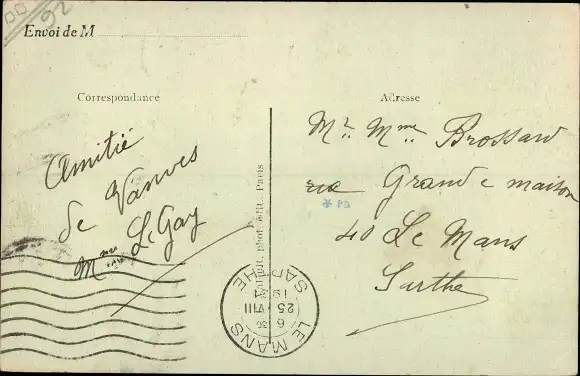 92
Envoi de M
Correspondance
Adresse
Amitié
de Vanves
Mme Le Gay
Mr. Mme Brossard
rue Grande maison
40 Le Mans
Sarthe
phot. édit., Paris
LE MANS
SARTHE
25 VIII